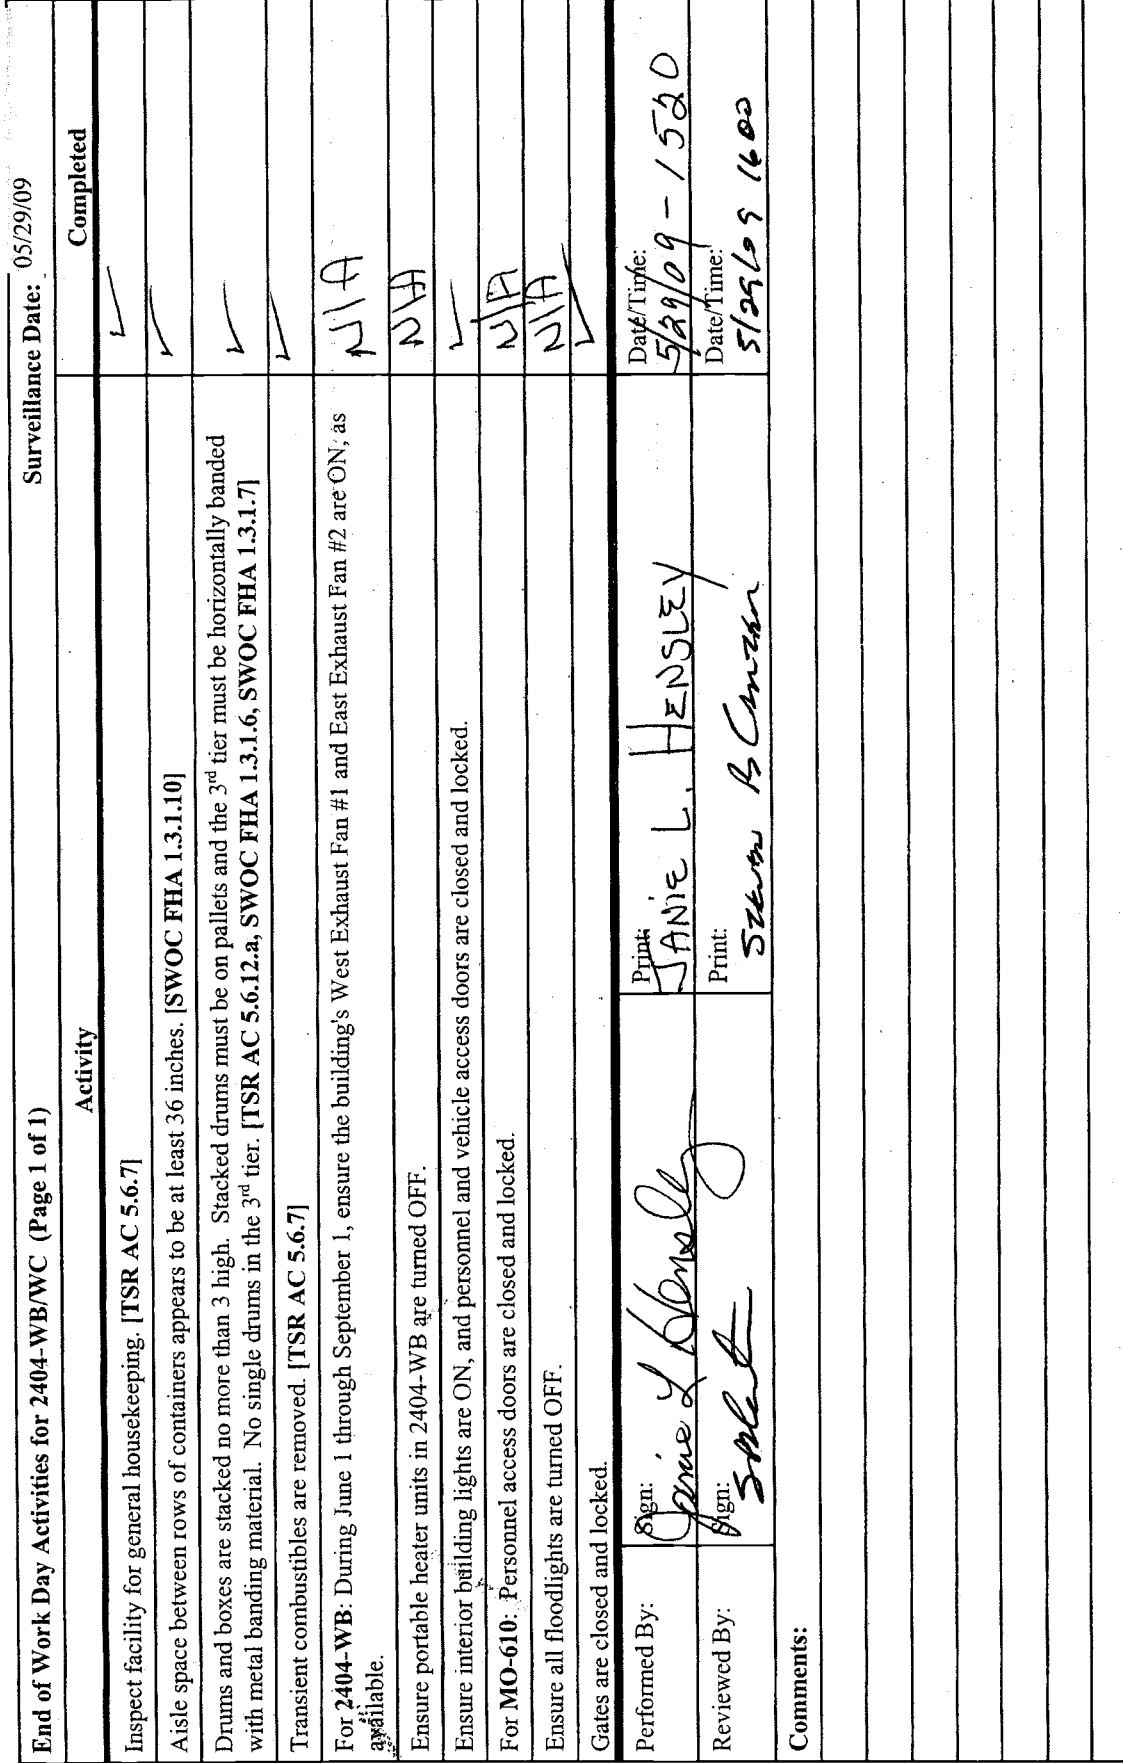 End of Work Day Activities for 2404-WB/WC (Page 1 of 1) Surveillance Date: 05/29/09
Activity Completed
Inspect facility for general housekeeping. [TSR AC 5.6.7] ✓
Aisle space between rows of containers appears to be at least 36 inches. [SWOC FHA 1.3.1.10] ✓
Drums and boxes are stacked no more than 3 high. Stacked drums must be on pallets and the 3rd tier must be horizontally banded
with metal banding material. No single drums in the 3rd tier. [TSR AC 5.6.12.a, SWOC FHA 1.3.1.6, SWOC FHA 1.3.1.7] ✓
Transient combustibles are removed. [TSR AC 5.6.7] ✓
For 2404-WB: During June 1 through September 1, ensure the building's West Exhaust Fan #1 and East Exhaust Fan #2 are ON, as
available. N/A
Ensure portable heater units in 2404-WB are turned OFF. N/A
Ensure interior building lights are ON, and personnel and vehicle access doors are closed and locked. ✓
For MO-610: Personnel access doors are closed and locked. N/A
Ensure all floodlights are turned OFF. N/A
Gates are closed and locked. ✓
Performed By: Sign: Janie L Hensley Print: JANIE L. HENSLEY Date/Time: 5/29/09 - 1520
Reviewed By: Sign: Print: Date/Time: 5/29/09 1600
Comments: